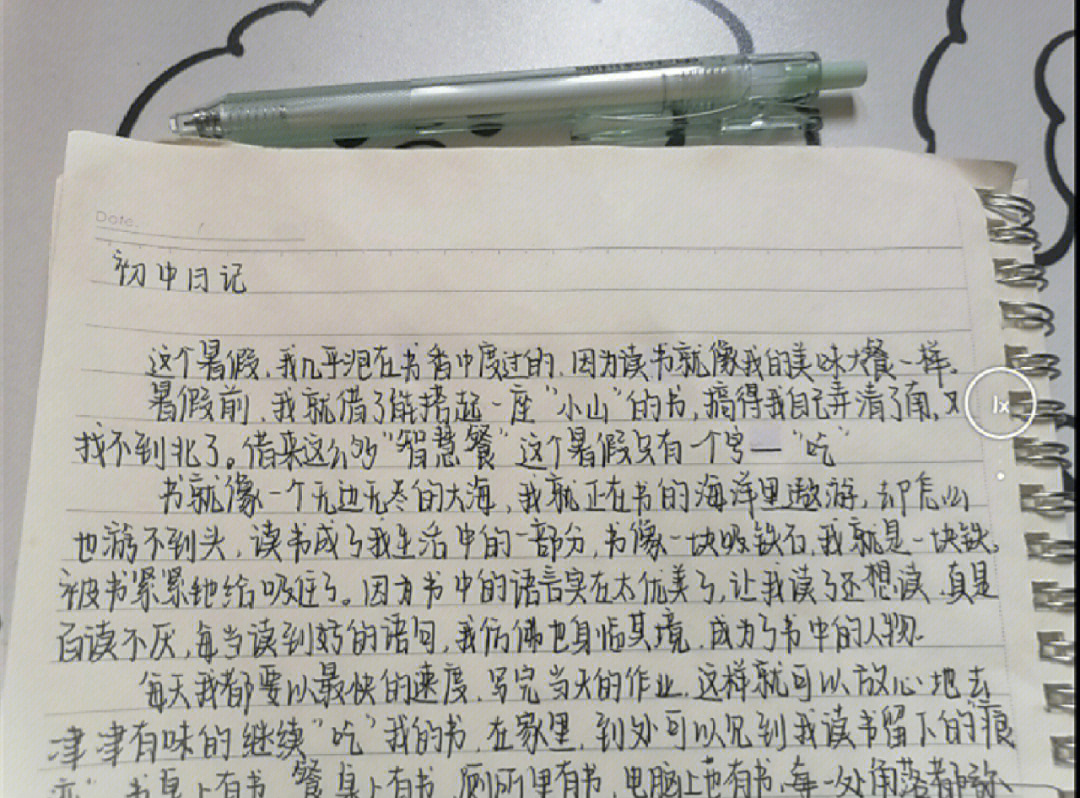 Date.
初中日记
这个暑假,我几乎泡在书香中度过的,因为读书就像我的美味大餐一样。
暑假前,我就借了能搭起一座“小山”的书,搞得我自己弄清了南,又
找不到北了。借来这么多“智慧餐”这个暑假只有一个字—“吃”
书就像一个无边无尽的大海,我就正在书的海洋里遨游,却怎么
也游不到头,读书成了我生活中的一部分,书像一块吸铁石,我就是一块铁,
被书紧紧地给吸住了。因为书中的语言实在太优美了,让我读了还想读,真是
百读不厌,每当读到好的语句,我仿佛也身临其境,成为了书中的人物.
每天我都要以最快的速度,写完当天的作业,这样就可以放心地去
津津有味的继续“吃”我的书,在家里,到处可以见到我读书留下的“痕
书桌上有书,餐桌上有书,厕所里有书,电脑上也有书,每一处角落都
1x